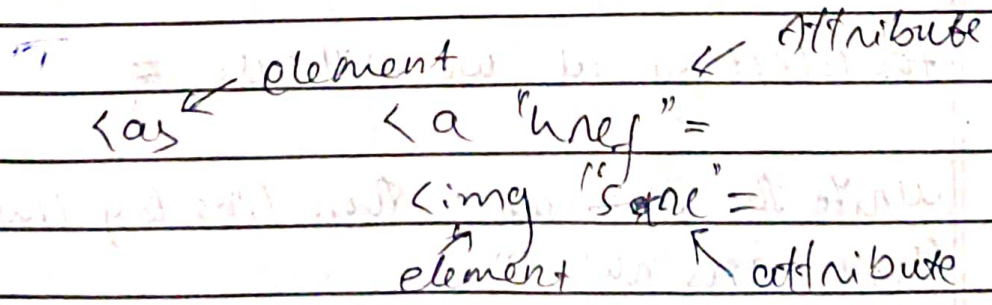 Attribute
element
<a> <a "href"=
<img "src"=
element attribute